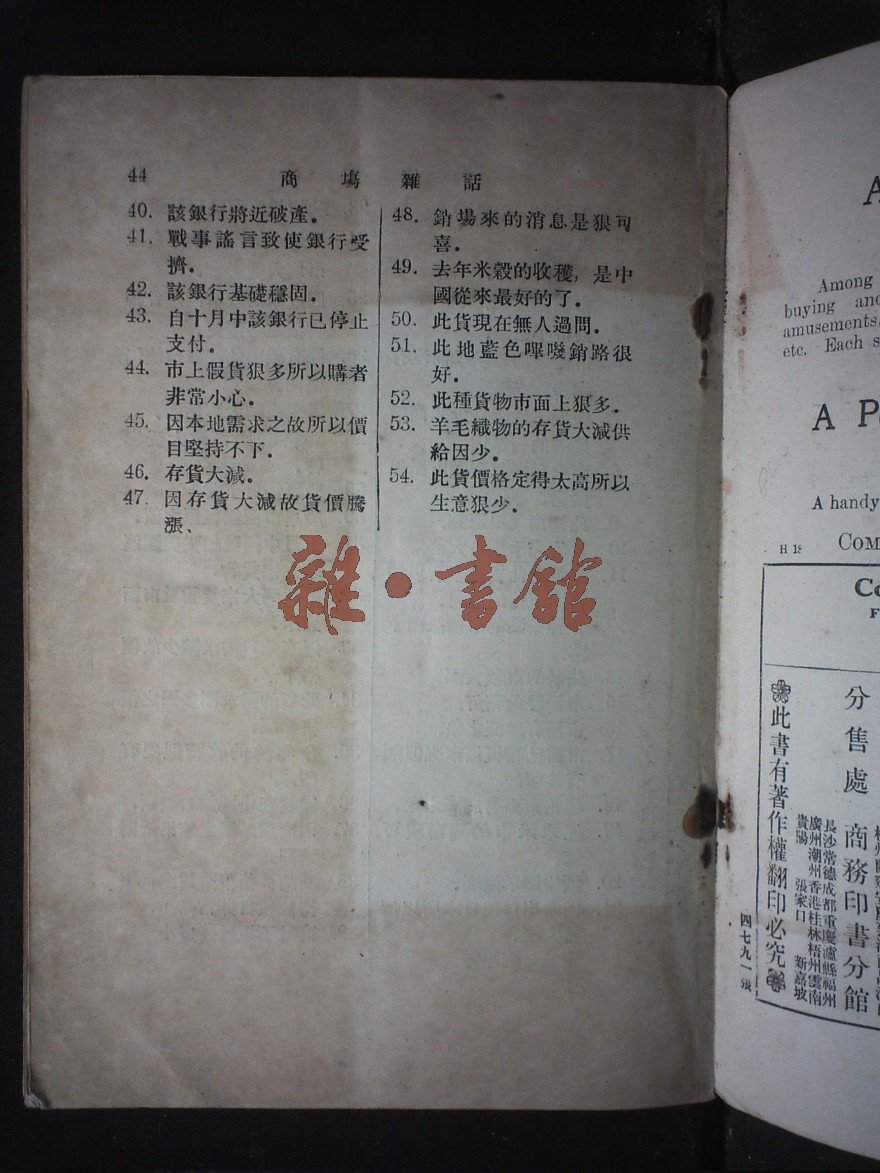 44 商塲雜話
40. 該銀行將近破產。
41. 戰事謠言致使銀行受
擠。
42. 該銀行基礎穩固。
43. 自十月中該銀行已停止
支付。
44. 市上假貨狠多所以購者
非常小心。
45. 因本地需求之故所以價
目堅持不下。
46. 存貨大減。
47. 因存貨大減故貨價騰
漲、
48. 銷場來的消息是狠可
喜。
49. 去年米穀的收穫，是中
國從來最好的了。
50. 此貨現在無人過問。
51. 此地藍色嗶嘰銷路很
好。
52. 此種貨物市面上狠多。
53. 羊毛織物的存貨大減供
給因少。
54. 此貨價格定得太高所以
生意狠少。
雜·書館
A
Among
buying and
amusements,
etc. Each s
A P
A handy
H 18
COM
Co
F
分售處
商務印書分館
長沙常德成都重慶瀘縣福州
廣州潮州香港桂林梧州雲南
貴陽 張家口 新嘉坡
此書有著作權翻印必究
四七九一張